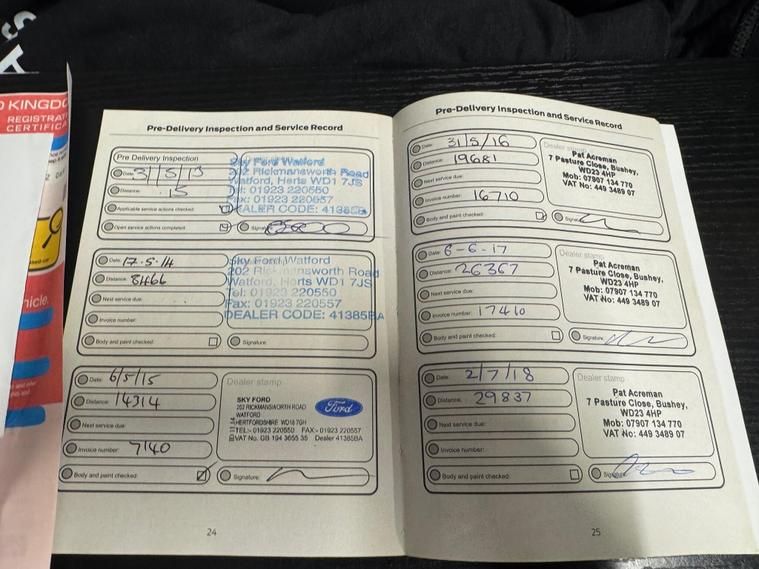 D KINGDO
REGISTRAT
CERTIFICA
hicle.
Pre-Delivery Inspection and Service Record
Pre Delivery Inspection
Date: 31/5/13
Distance: 15
Applicable service actions checked:
Open service actions completed:
Signature:
Sky Ford Watford
202 Rickmansworth Road
Watford, Herts WD1 7JS
Tel: 01923 220550
Fax: 01923 220557
DEALER CODE: 41385BA
Date: 17.5.14
Distance: 8466
Next service due:
Invoice number:
Body and paint checked:
Signature:
Sky Ford Watford
202 Rickmansworth Road
Watford, Herts WD1 7JS
Tel: 01923 220550
Fax: 01923 220557
DEALER CODE: 41385BA
Date: 6/5/15
Distance: 14314
Next service due:
Invoice number: 7140
Body and paint checked:
Dealer stamp
SKY FORD
202 RICKMANSWORTH ROAD
WATFORD
HERTFORDSHIRE WD18 7GH
TEL:- 01923 220550 FAX:- 01923 220557
VAT No. GB 194 3655 35 Dealer 41385BA
Ford
Signature:
24
Pre-Delivery Inspection and Service Record
Date: 31/5/16
Distance: 19681
Next service due:
Invoice number: 16710
Body and paint checked:
Dealer stamp
Pat Acreman
7 Pasture Close, Bushey,
WD23 4HP
Mob: 07907 134 770
VAT No: 449 3489 07
Signature:
Date: 6-6-17
Distance: 26367
Next service due:
Invoice number: 17410
Body and paint checked:
Dealer stamp
Pat Acreman
7 Pasture Close, Bushey,
WD23 4HP
Mob: 07907 134 770
VAT No: 449 3489 07
Signature:
Date: 2/7/18
Distance: 29837
Next service due:
Invoice number:
Body and paint checked:
Dealer stamp
Pat Acreman
7 Pasture Close, Bushey,
WD23 4HP
Mob: 07907 134 770
VAT No: 449 3489 07
Signature:
25